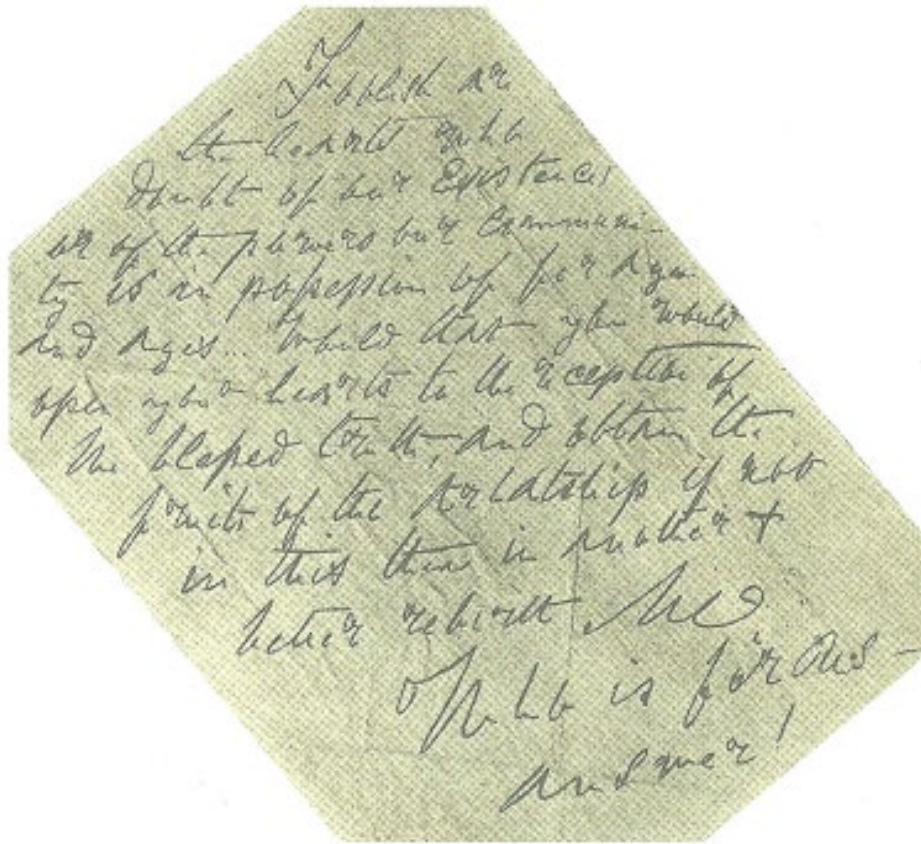 Foolish are
the hearts who
doubt of our Existence!
or of the powers our communi-
ty is in possession of for ages
and ages.. Would that you would
open your hearts to the reception of
the blessed truth, and obtain the
fruits of the Arhatship if not
in this then in another +
better rebirth.
Who is for us –
answer!